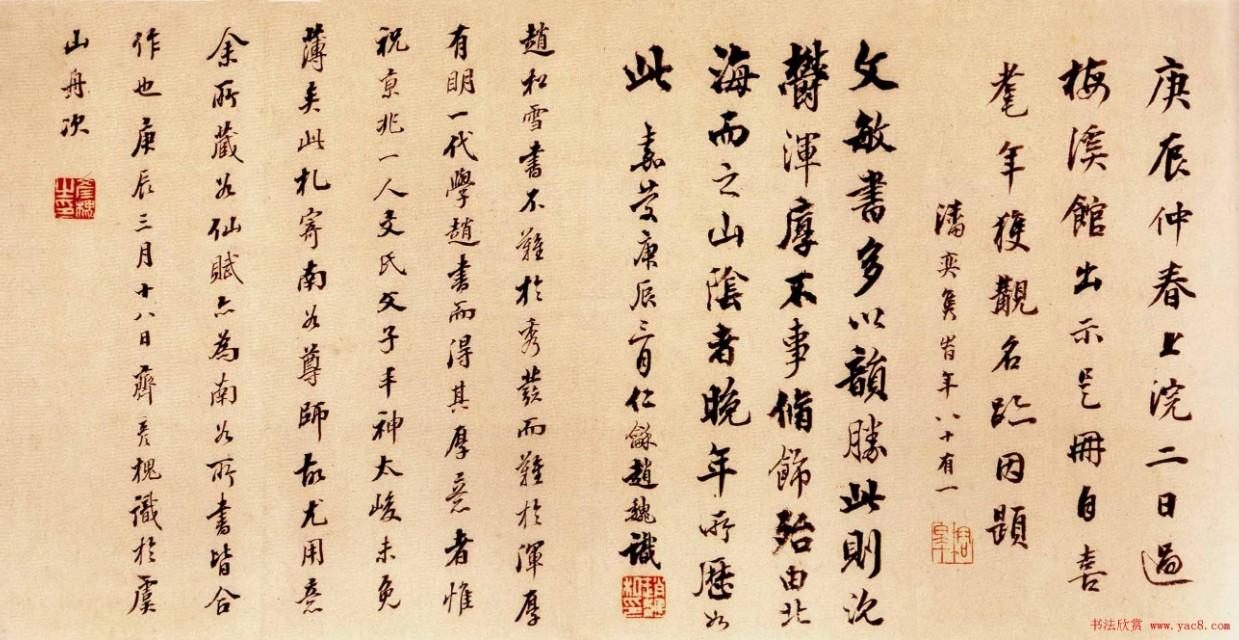 庚辰仲春上浣二日過
梅溪館出示是冊自喜
耄年獲觀名跡因題
潘奕雋時年八十有一
文敏書多以韻勝此則沉
欝渾厚不事脩飾殆由北
海而之山陰者晚年所歷如
此 嘉慶庚辰二月仁龢趙魏識
趙松雪書不難於秀發而難於渾厚
有明一代學趙書而得其厚意者惟
祝京兆一人文氏父子丰神太峻未免
薄矣此札寄南谷尊師故尤用意
余所藏谷仙賦亦為南谷所書皆合
作也庚辰三月十八日齊彥槐識於虞
山舟次
彥槐之印
书法欣赏 www.yac8.com